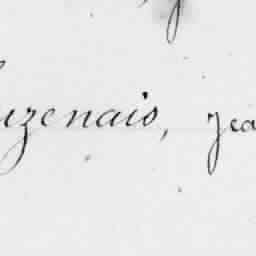 uzenais, Jea